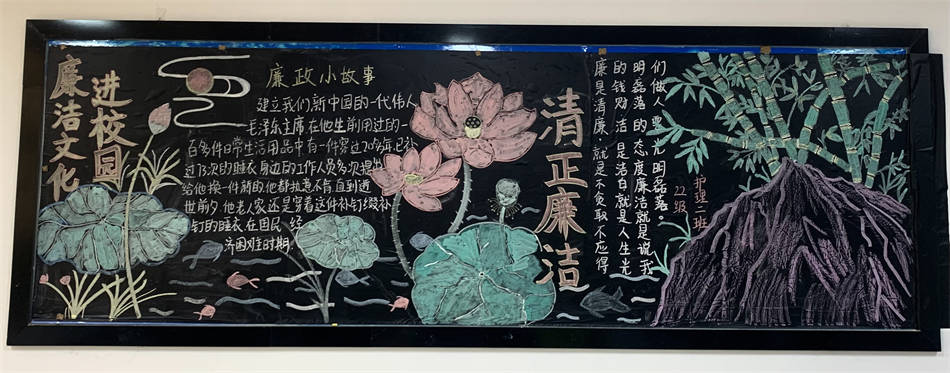 廉洁文化
进校园
廉政小故事
建立我们新中国的一代伟人
毛泽东主席在他生前用过的一
百多件日常生活用品中有一件穿过20多年,已补
过73次的睡衣身边的工作人员多次提出
给他换一件新的,他都执意不肯直到逝
世前夕,他老人家还是穿着这件补钉缀补
钉的睡衣在国民 经
济困难时期.
清正廉洁
廉是清廉 就是不贪取不应得
的钱财 洁是洁白就是人生光
明磊落的态度廉洁就是说我
们做人要光明磊落。
22级
护理二班